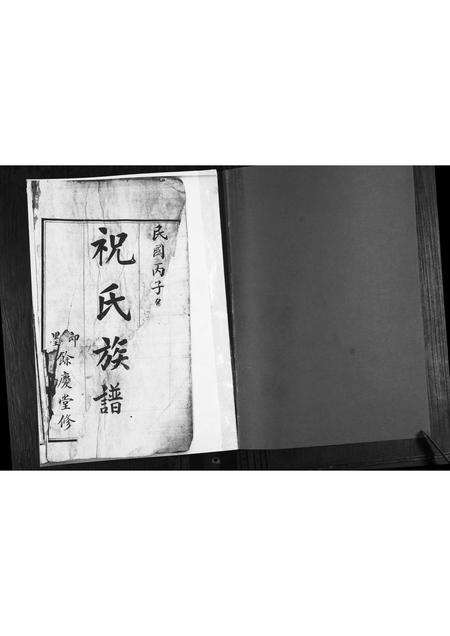 民國丙子
祝氏族譜
即墨
餘慶堂修